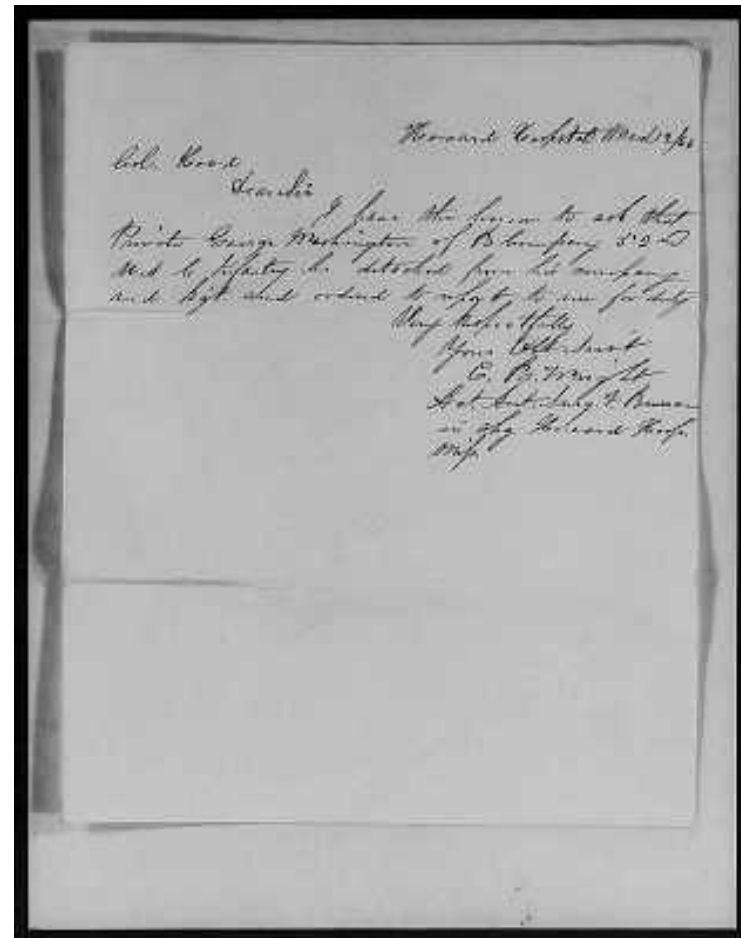 Howard Hospital
Col. Wood
Dear Sir
I have the honor to ask that
Private George Washington of B Company 52nd
U.S.C. Infantry be detached from his company
and Regt and ordered to report to me for duty
Very Respectfully
Your Obt Servt
C. B. Wright
Act Asst Surg
in chg Howard Hosp.